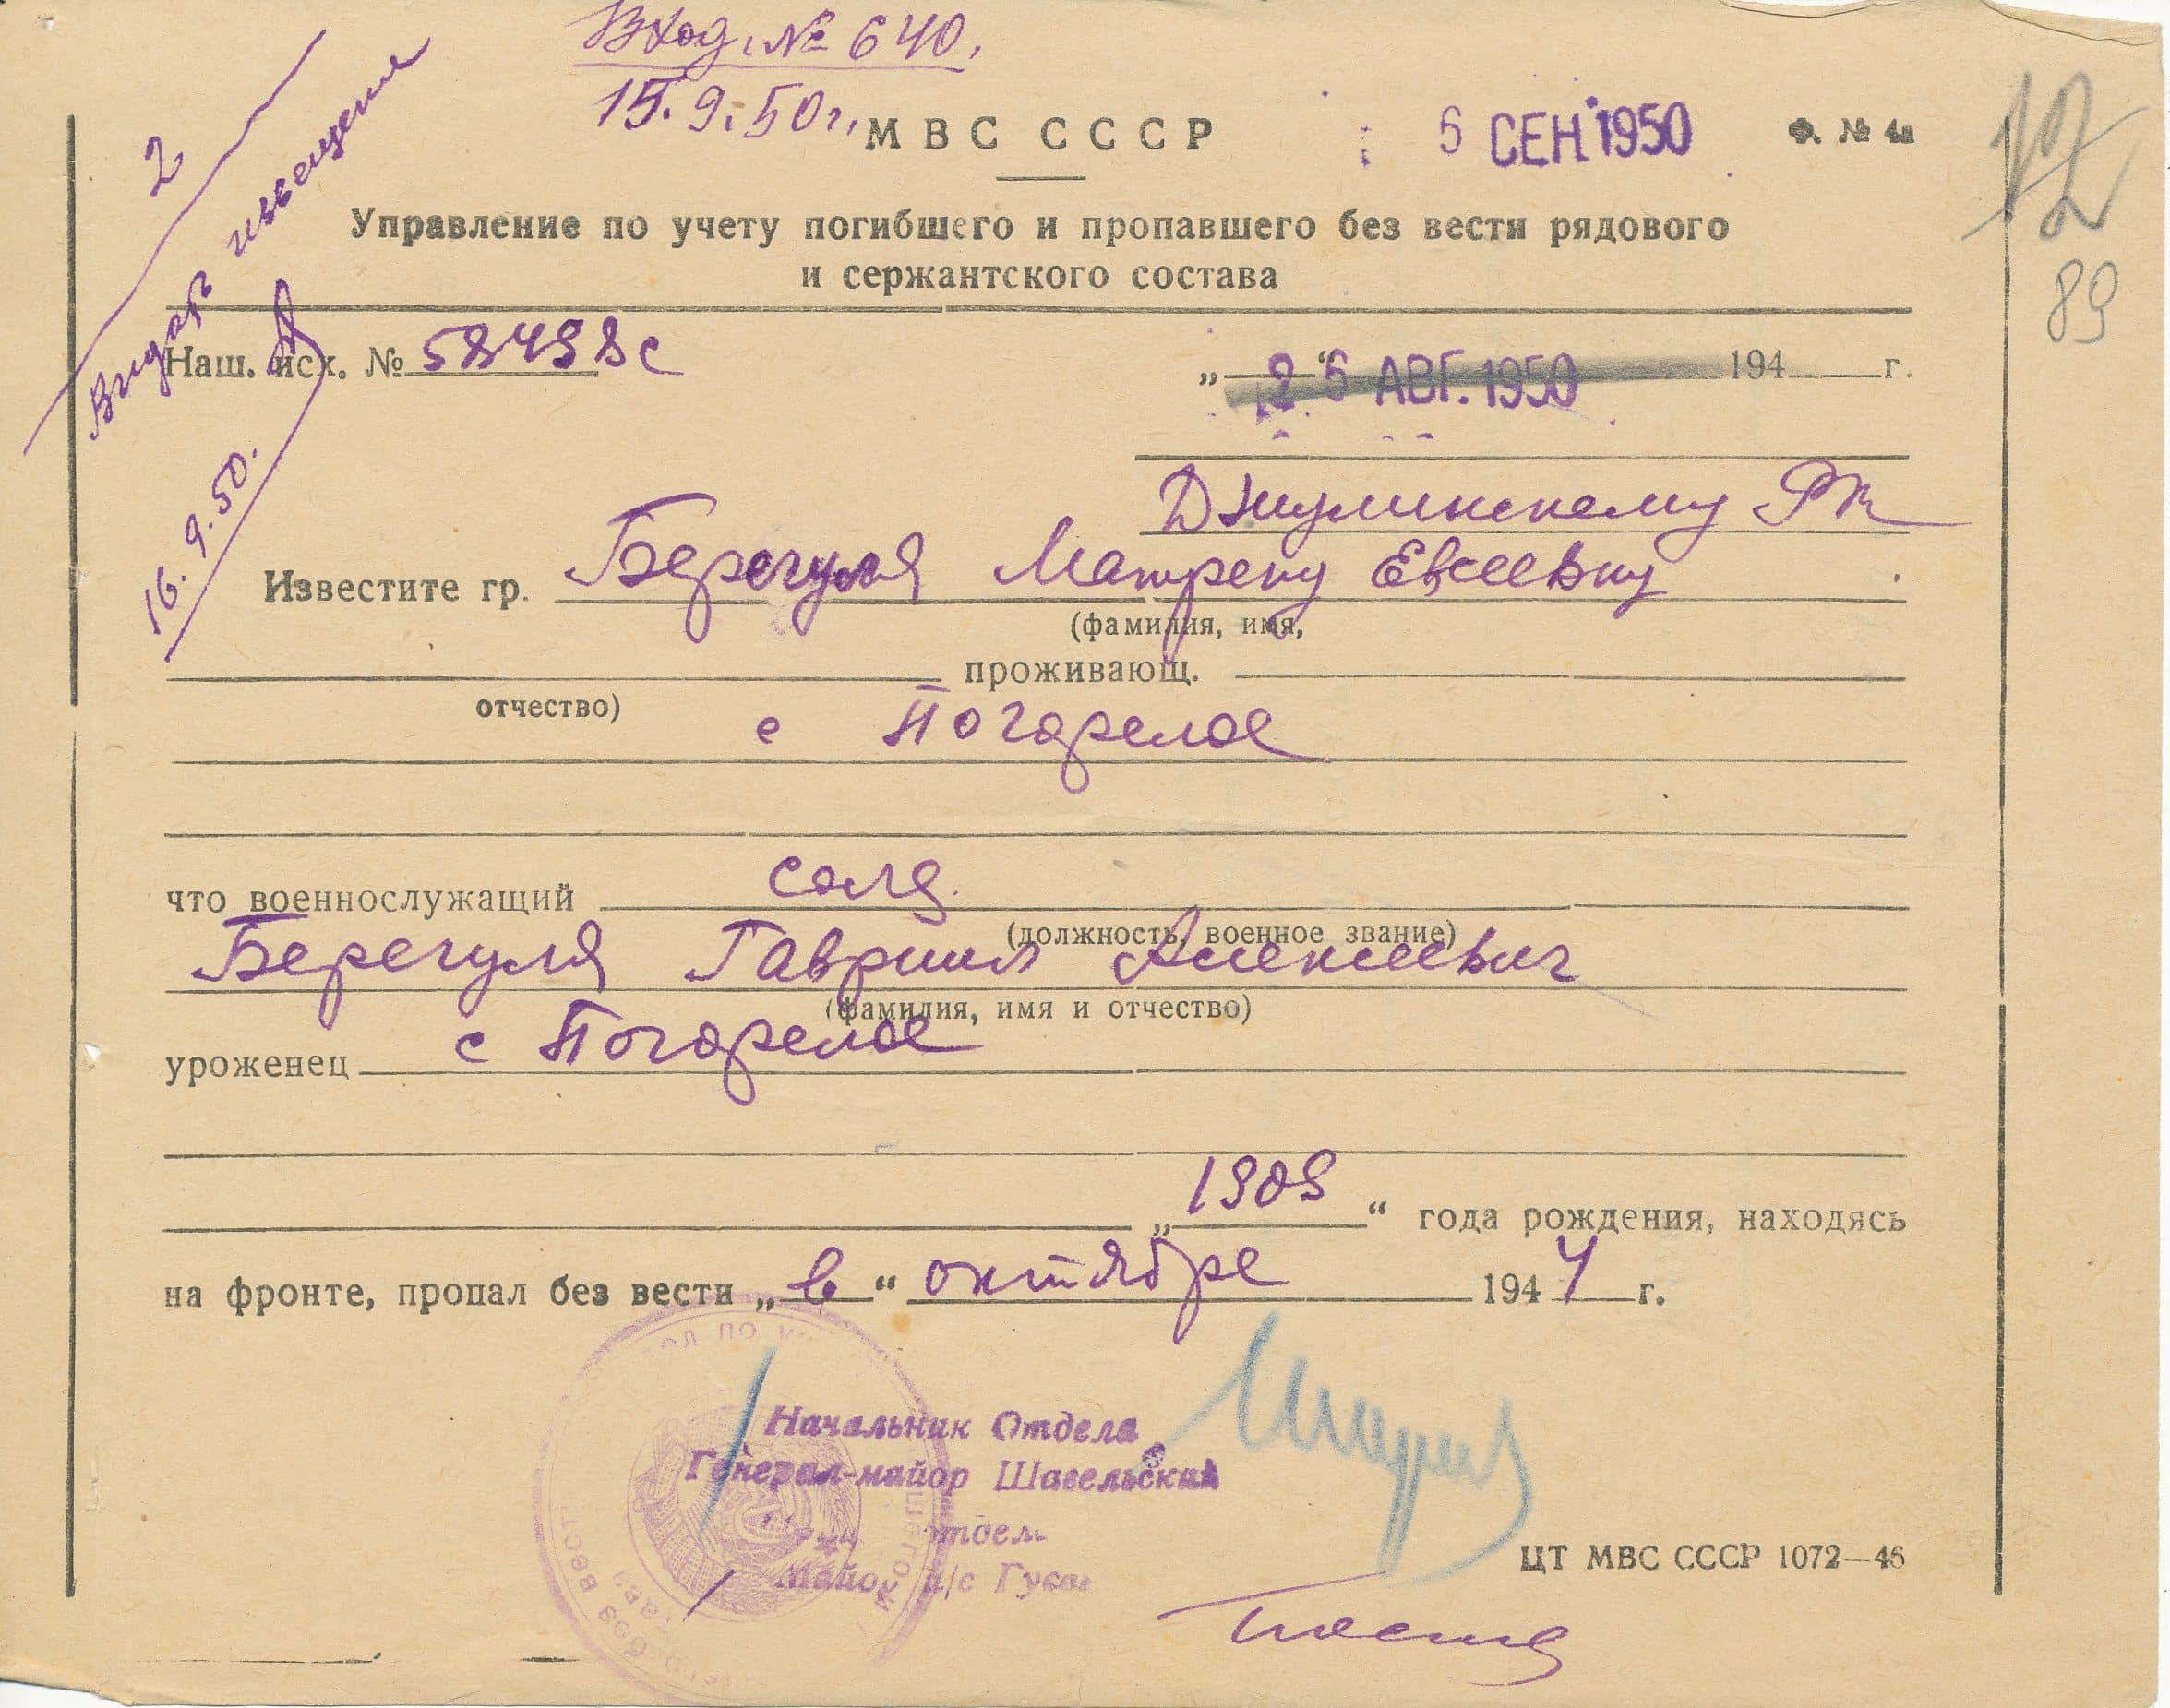 Вход. № 640.
15.9.50г.
МВС СССР
5 СЕН 1950
Ф. № 4а
12
89
2
Выдать извещение
16.9.50.
Управление по учету погибшего и пропавшего без вести рядового
и сержантского состава
Наш. исх. № 58498с
„ 26 “ АВГ. 1950 194 г.
Джулинскому РВК
Известите гр. Берегуля Матрену Евсеевну
(фамилия, имя,
проживающ.
отчество)
с Погорелое
что военнослужащий солд.
(должность, военное звание)
Берегуля Гавриил Алексеевич
(фамилия, имя и отчество)
уроженец с Погорелое
„ 1909 “ года рождения, находясь
на фронте, пропал без вести „ в “ октябре 1944 г.
Начальник Отдела
Генерал-майор Шавельский
Майор и/с
ЦТ МВС СССР 1072—46